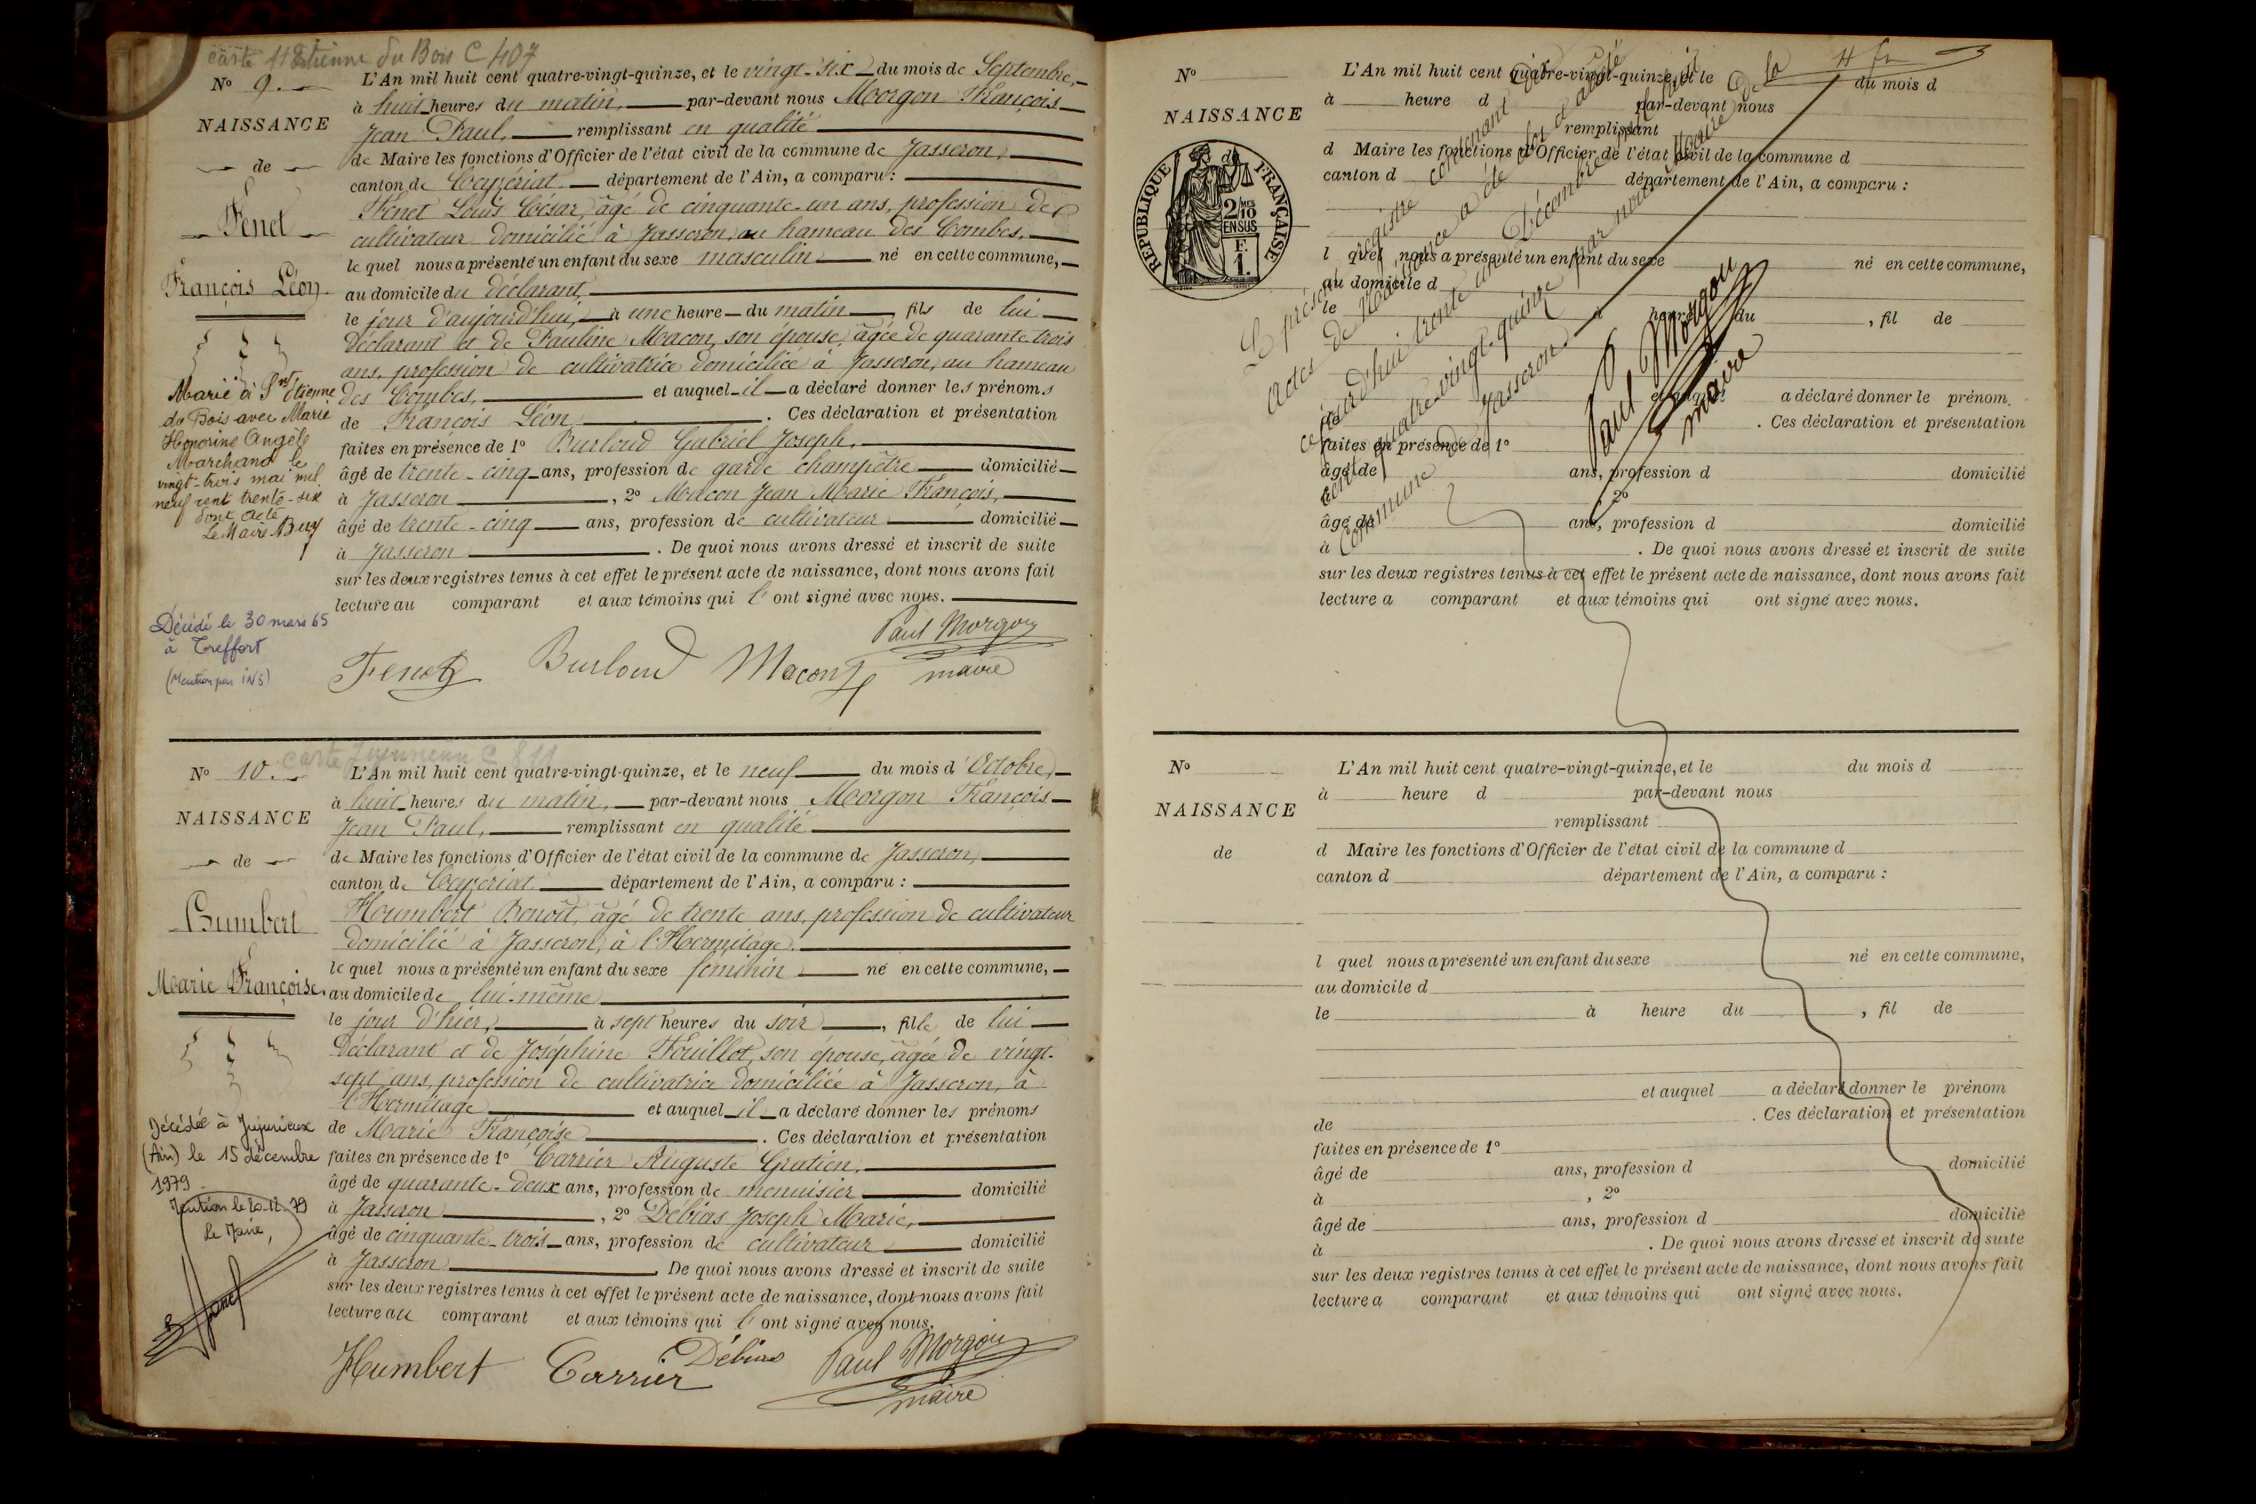 carte St Etienne du Bois C 407
N° 9.
NAISSANCE
de
Fenet
François Léon
Marié à St Etienne
du Bois avec Marie
Honorine Angèle
Marchand le
vingt-trois mai mil
neuf cent trente-six
dont acte
Le Maire
Décédé le 30 mars 65
à Treffort
(Mention par INS)
L'An mil huit cent quatre-vingt-quinze, et le vingt-six du mois de Septembre,
à huit heures du matin, par-devant nous Morgon François
Jean Paul, remplissant en qualité
de Maire les fonctions d'Officier de l'état civil de la commune de Jasseron,
canton de Ceyzériat département de l'Ain, a comparu :
Fenet Louis César, âgé de cinquante-un ans, profession de
cultivateur domicilié à Jasseron, au hameau des Combes,
le quel nous a présenté un enfant du sexe masculin né en cette commune,
au domicile du déclarant,
le jour d'aujourd'hui, à une heure du matin, fils de lui
déclarant et de Pauline Macon, son épouse, âgée de quarante-trois
ans, profession de cultivatrice domiciliée à Jasseron, au hameau
des Combes, et auquel il a déclaré donner les prénoms
de François Léon. Ces déclaration et présentation
faites en présence de 1° Burloud Gabriel Joseph,
âgé de trente-cinq ans, profession de garde champêtre domicilié
à Jasseron, 2° Macon Jean Marie François,
âgé de trente-cinq ans, profession de cultivateur domicilié
à Jasseron. De quoi nous avons dressé et inscrit de suite
sur les deux registres tenus à cet effet le présent acte de naissance, dont nous avons fait
lecture au comparant et aux témoins qui l' ont signé avec nous.
Fenet Burloud Macon Paul Morgon
maire
N° 10.
NAISSANCE
de
Humbert
Marie Françoise
Décédée à Jujurieux
(Ain) le 15 décembre
1979
Mention le 20-12-79
Le Maire,
L'An mil huit cent quatre-vingt-quinze, et le neuf du mois d'Octobre,
à huit heures du matin, par-devant nous Morgon François
Jean Paul, remplissant en qualité
de Maire les fonctions d'Officier de l'état civil de la commune de Jasseron,
canton de Ceyzériat département de l'Ain, a comparu :
Humbert Benoît, âgé de trente ans, profession de cultivateur
domicilié à Jasseron, à l'Hermitage.
le quel nous a présenté un enfant du sexe féminin né en cette commune,
au domicile de lui-même
le jour d'hier, à sept heures du soir, fille de lui
déclarant et de Joséphine Fouillot, son épouse, âgée de vingt-
sept ans, profession de cultivatrice domiciliée à Jasseron, à
l'Hermitage et auquel il a déclaré donner les prénoms
de Marie Françoise. Ces déclaration et présentation
faites en présence de 1° Carrier Auguste Gratien,
âgé de quarante-deux ans, profession de menuisier domicilié
à Jasseron, 2° Débias Joseph Marie,
âgé de cinquante-trois ans, profession de cultivateur domicilié
à Jasseron. De quoi nous avons dressé et inscrit de suite
sur les deux registres tenus à cet effet le présent acte de naissance, dont nous avons fait
lecture au comparant et aux témoins qui l' ont signé avec nous.
Humbert Carrier Débias Paul Morgon
maire
N°
NAISSANCE
de
RÉPUBLIQUE FRANÇAISE
2/10 EN SUS
F. 1.
L'An mil huit cent quatre-vingt-quinze, et le du mois d
à heure d par-devant nous
remplissant
d Maire les fonctions d'Officier de l'état civil de la commune d
canton d département de l'Ain, a comparu :
l quel nous a présenté un enfant du sexe né en cette commune,
au domicile d
le à heure du , fil de
et auquel a déclaré donner le prénom
de . Ces déclaration et présentation
faites en présence de 1°
âgé de ans, profession d domicilié
à , 2°
âgé de ans, profession d domicilié
à . De quoi nous avons dressé et inscrit de suite
sur les deux registres tenus à cet effet le présent acte de naissance, dont nous avons fait
lecture a comparant et aux témoins qui ont signé avec nous.
Le présent registre contenant
actes de Naissance a été clos et arrêté
cejourd'hui trente un Décembre mil huit
cent quatre-vingt-quinze par nous Maire de la
commune de Jasseron
Paul Morgon
maire
N°
NAISSANCE
de
L'An mil huit cent quatre-vingt-quinze, et le du mois d
à heure d par-devant nous
remplissant
d Maire les fonctions d'Officier de l'état civil de la commune d
canton d département de l'Ain, a comparu :
l quel nous a présenté un enfant du sexe né en cette commune,
au domicile d
le à heure du , fil de
et auquel a déclaré donner le prénom
de . Ces déclaration et présentation
faites en présence de 1°
âgé de ans, profession d domicilié
à , 2°
âgé de ans, profession d domicilié
à . De quoi nous avons dressé et inscrit de suite
sur les deux registres tenus à cet effet le présent acte de naissance, dont nous avons fait
lecture a comparant et aux témoins qui ont signé avec nous.